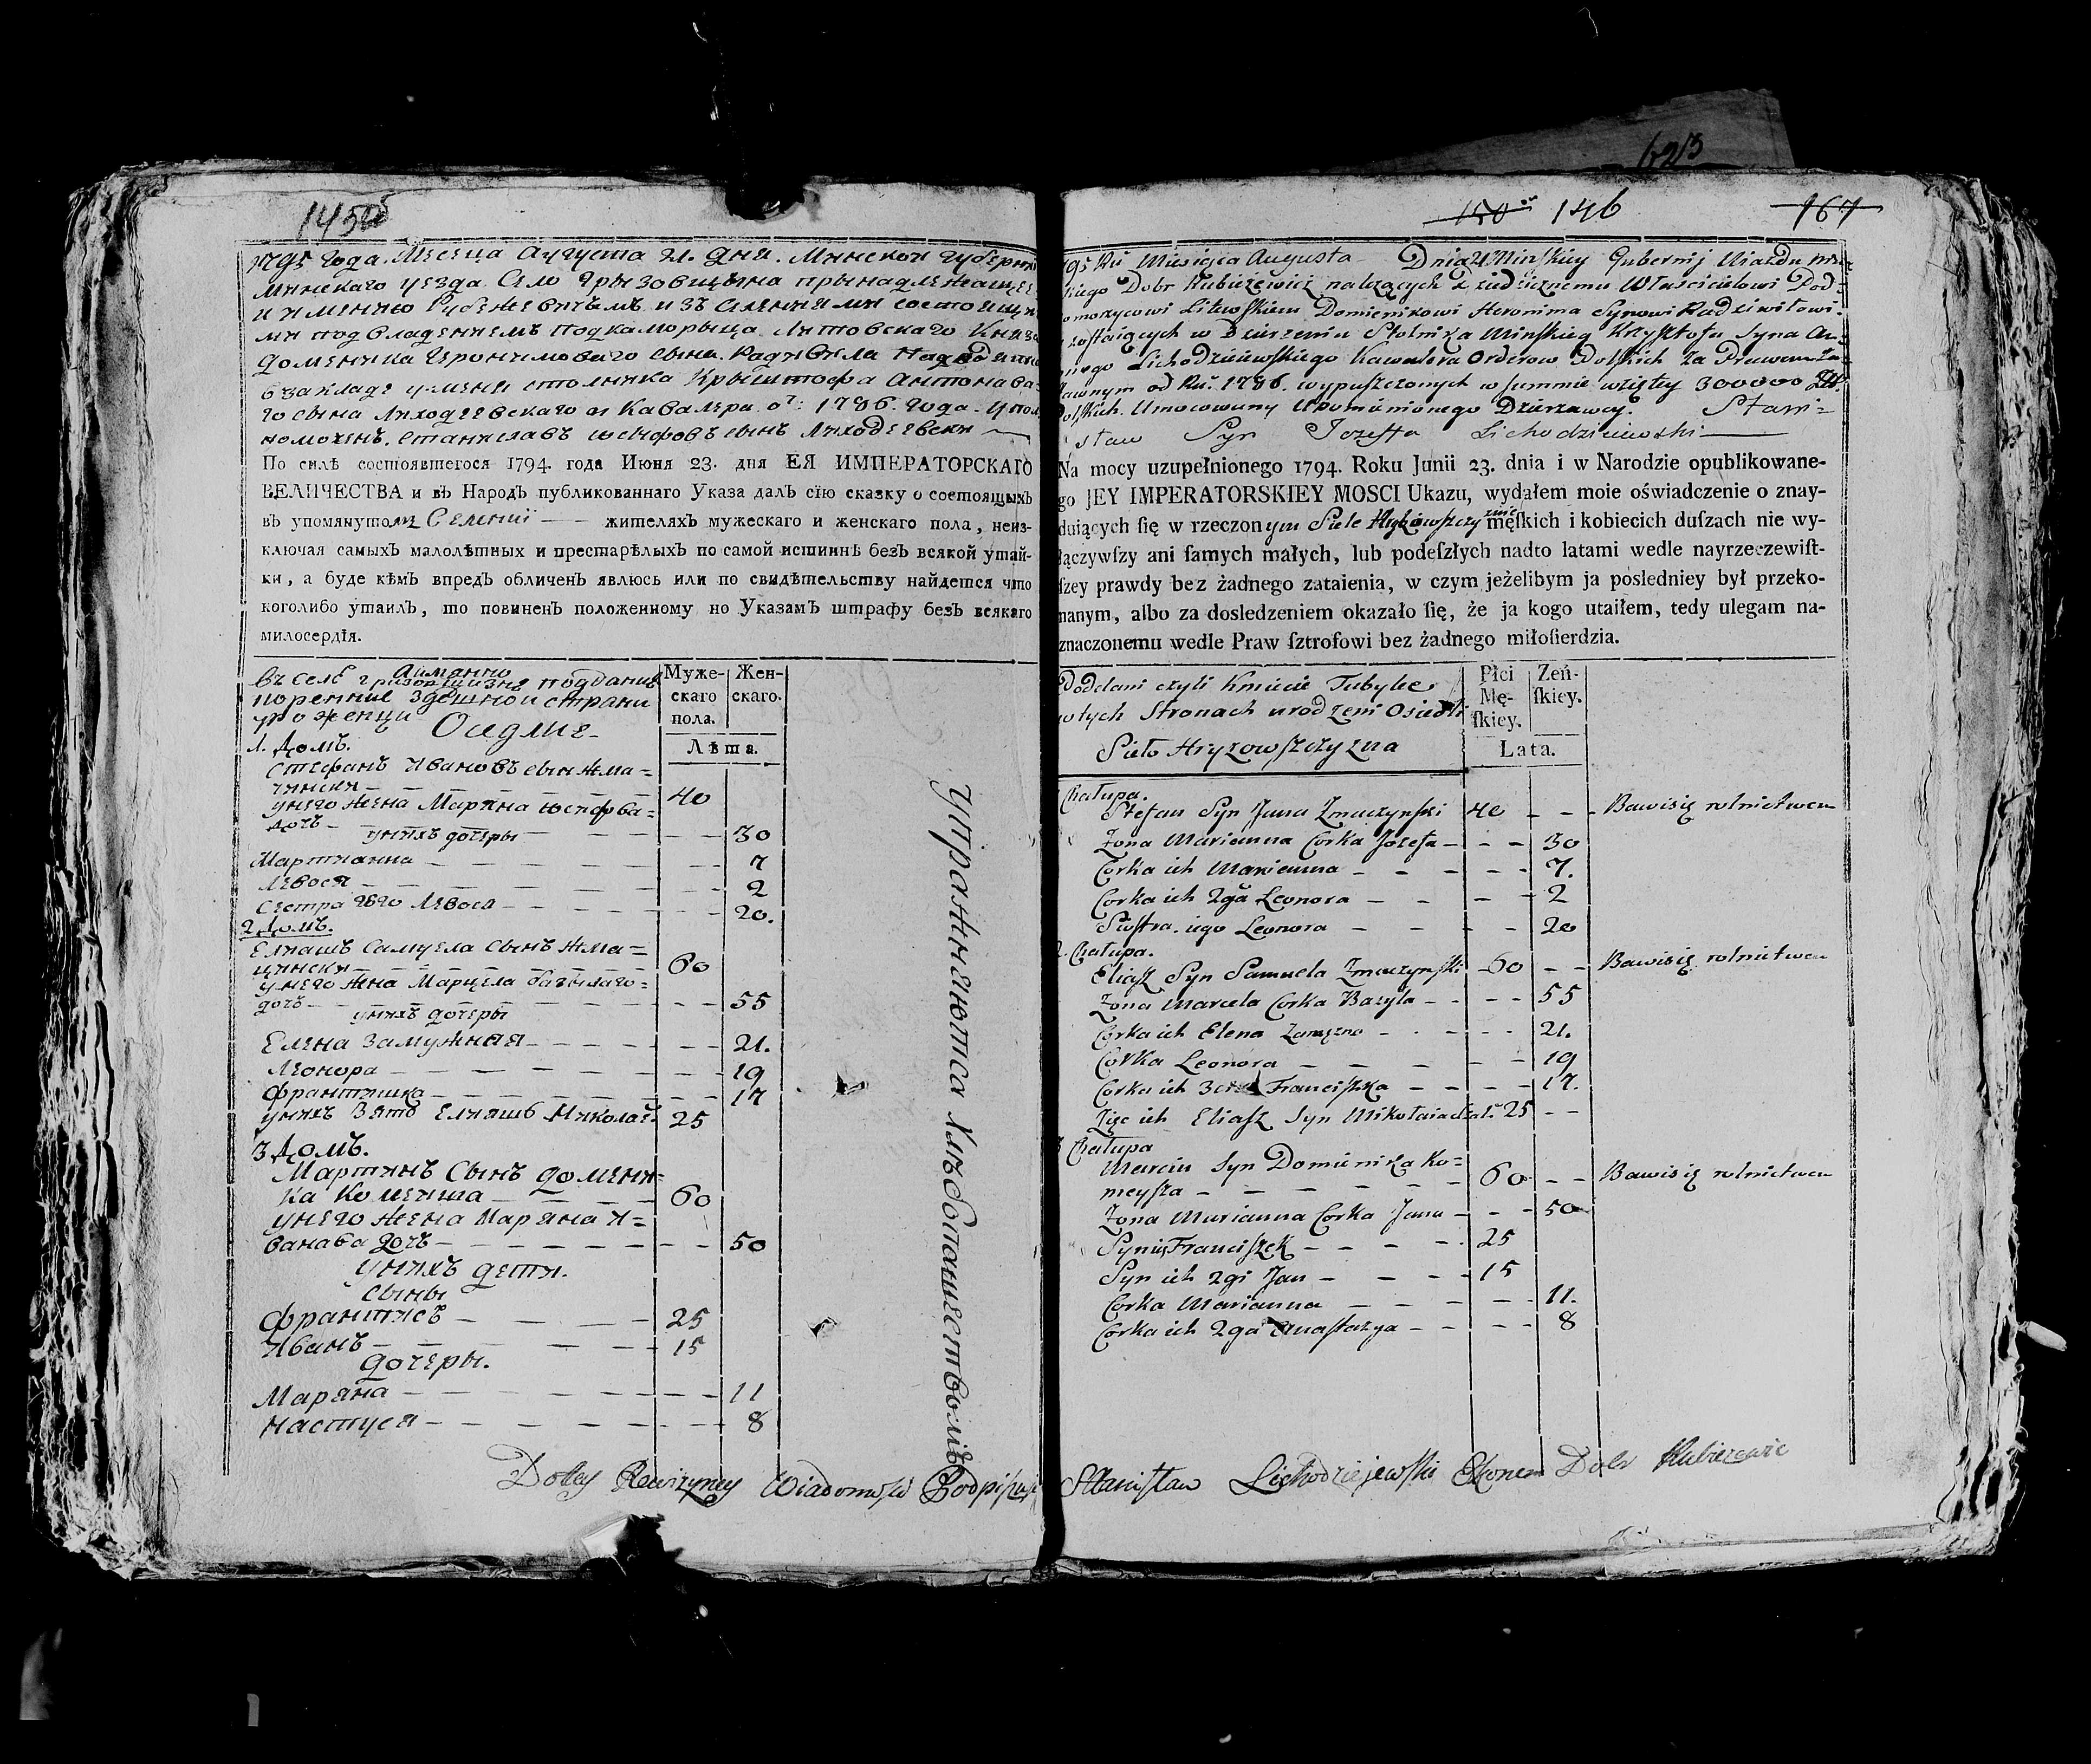 623
145об
1795 года. Месеца Аугуста 21. дня. Минской губерни
Минского уезда. Село Грызовщызна прынадлежащее
и имению Рубежевичъмъ и зъ
ми под владениемъ подкаморыца Литовскаго Князя
Доменика Иеронимоваго сына. Радивила
в закладе у меня столника Крыштофа Антонава-
го сына Лиходзевскаго и Кавалера отъ 1786. года. упол
номоченъ. Станиславъ Юсефовъ сынъ Лиходзевски
По силѣ состоявшегося 1794. года Июня 23. дня ЕЯ ИМПЕРАТОРСКАГО
ВЕЛИЧЕСТВА и въ Народъ публикованнаго Указа далъ сїю сказку о состоящыхъ
въ упомянутомъ Селении —— жителяхъ мужескаго и женскаго пола, неиз-
ключая самыхъ малолѣтныхъ и престарѣлыхъ по самой истиннѣ безъ всякой утай-
ки, а буде кѣмъ впредъ обличенъ явлюсь или по свидѣтельству найдется что
коголибо утаилъ, то повиненъ положенному по Указамъ штрафу безъ всякаго
милосердїя.
въ селе Грызовщизне подданыя
коренние здешной страни
уроженци Оседлие.
Муже-
скаго
пола.
Жен-
скаго.
Лѣта.
1. Домъ.
Стефанъ Ивановъ сын Жма-
чински — 40
у него жена Маряна Юсефова-
дочъ — 30
у нихъ дочеры
Мартианна — 7
Левося — 2
Сестра его Левося — 20.
2 Домъ.
Елиашъ Самуела сынъ Жма-
цински — 60
у него жена Марцела базылаго-
дочъ — 55
у нихъ дочеры
Елена замужная — 21.
Леонора — 19
Франтишка — 17
у нихъ зять Елиашъ Николаев. 25
3 Домъ.
Мартинъ Сынъ Домени-
ка Комейша — 60
у него жена Марiана И-
ванава дочъ — 50
у нихъ дети.
сыны
Франтисъ — 25
Иванъ — 15
дочеры.
Марiана — 11
Настуся — 8
Упражняются хлебопашествомъ
150 146 167
1795 Ru Miesięca Augusta Dnia 21 Minskiey Gubernij Uiazdu Mins-
kiego Dobr Rubieżewicz należących Dziedzicznemu Właścicielowi Pod-
omorzycowi Litewskiemu Domienikowi Heronima Synowi Radziwiłowi.
zostaiących w Dzierżeniu Stolnika Minskieg Krzysztofu Syna An-
niego Lichodzieiewskiego Kawalera Orderow Polskich za Prawem Za-
tawnym od Ru 1786. wypuszczonych w summie wziętey 300000 Zł.
Polskich. Umocowany Wpomnionego Dzierzawcy. Stani-
sław Syn Jozeffa Lichodzieiewski
Na mocy uzupełnionego 1794. Roku Junii 23. dnia i w Narodzie opublikowane-
go JEY IMPERATORSKIEY MOSCI Ukazu, wydałem moie oświadczenie o znay-
duiących ſię w rzeczonym Siele Hryzowszczyznie męſkich i kobiecich duſzach nie wy-
łączywſzy ani ſamych małych, lub podeſzłych nadto latami wedle nayrzeczewiſt-
ſzey prawdy bez żadnego zataienia, w czym jeżelibym ja posledniey był przeko-
nanym, albo za dosledzeniem okazało ſię, że ja kogo utaiłem, tedy ulegam na-
znaczonemu wedle Praw ſztrofowi bez żadnego miłoſierdzia.
Poddani czyli Kmiecie Tubylce
w tych Stronach urodzeni Osiedli
Sieło Hryzowszczyzna
Płci
Mę-
ſkiey.
Zeń-
ſkiey.
Lata.
Chałupa.
Stefan Syn Jana Zmaczynski 40 — — Bawi się rolnictwem
Zona Marianna Corka Jozefa — 30
Corka ich Marianna — 7.
Corka ich 2ga Leonora — 2
Siostra iego Leonora — 20
2. Chałupa.
Eliasz Syn Samuela Zmaczynski 60 — — Bawi się rolnictwem
Zona Marcela Corka Bazyla — 55
Corka ich Elena Zamęzna — 21.
Corka Leonora — 19
Corka ich 3cia Franciszka — 17.
Zięc ich Eliasz Syn Mikołaia 25 — —
3 Chałupa
Marcin Syn Domienika Ko-
meysza — 60 — — Bawi się rolnictwem
Zona Marianna Corka Jana — 50
Syn ich Franciszek — 25
Syn ich 2gi Jan — 15
Corka Marianna — 11.
Corka ich 2ga Anastazya — 8
Do tey Rewizyney Wiadomości Podpisuię Stanisław Lichodziejewski Ekonom Dobr Rubiezewic